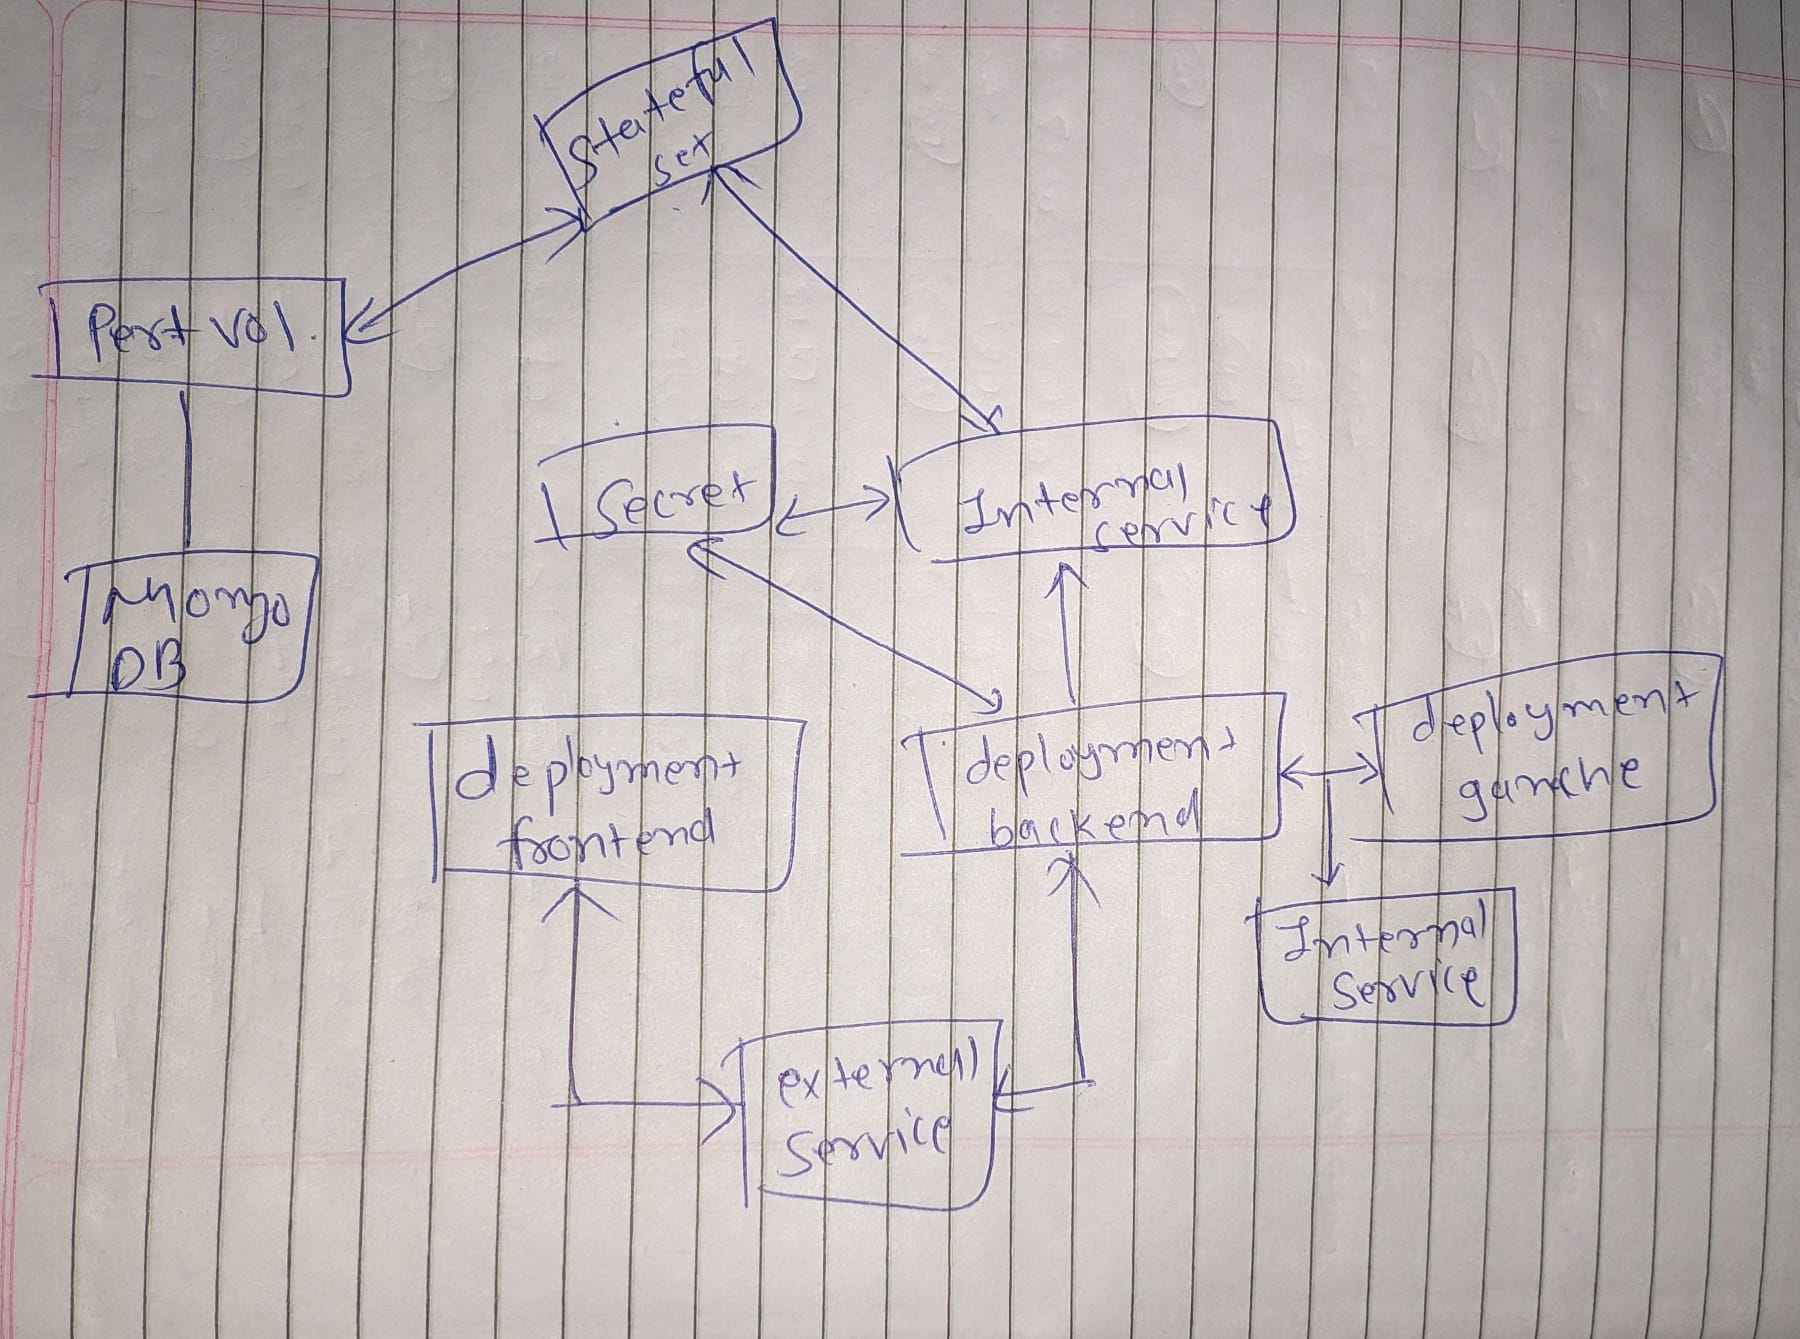 Stateful
set
Pert vol.
Secret
Internal
service
Mongo
DB
deployment
frontend
deployment
backend
deployment
ganache
Internal
Service
external
Service